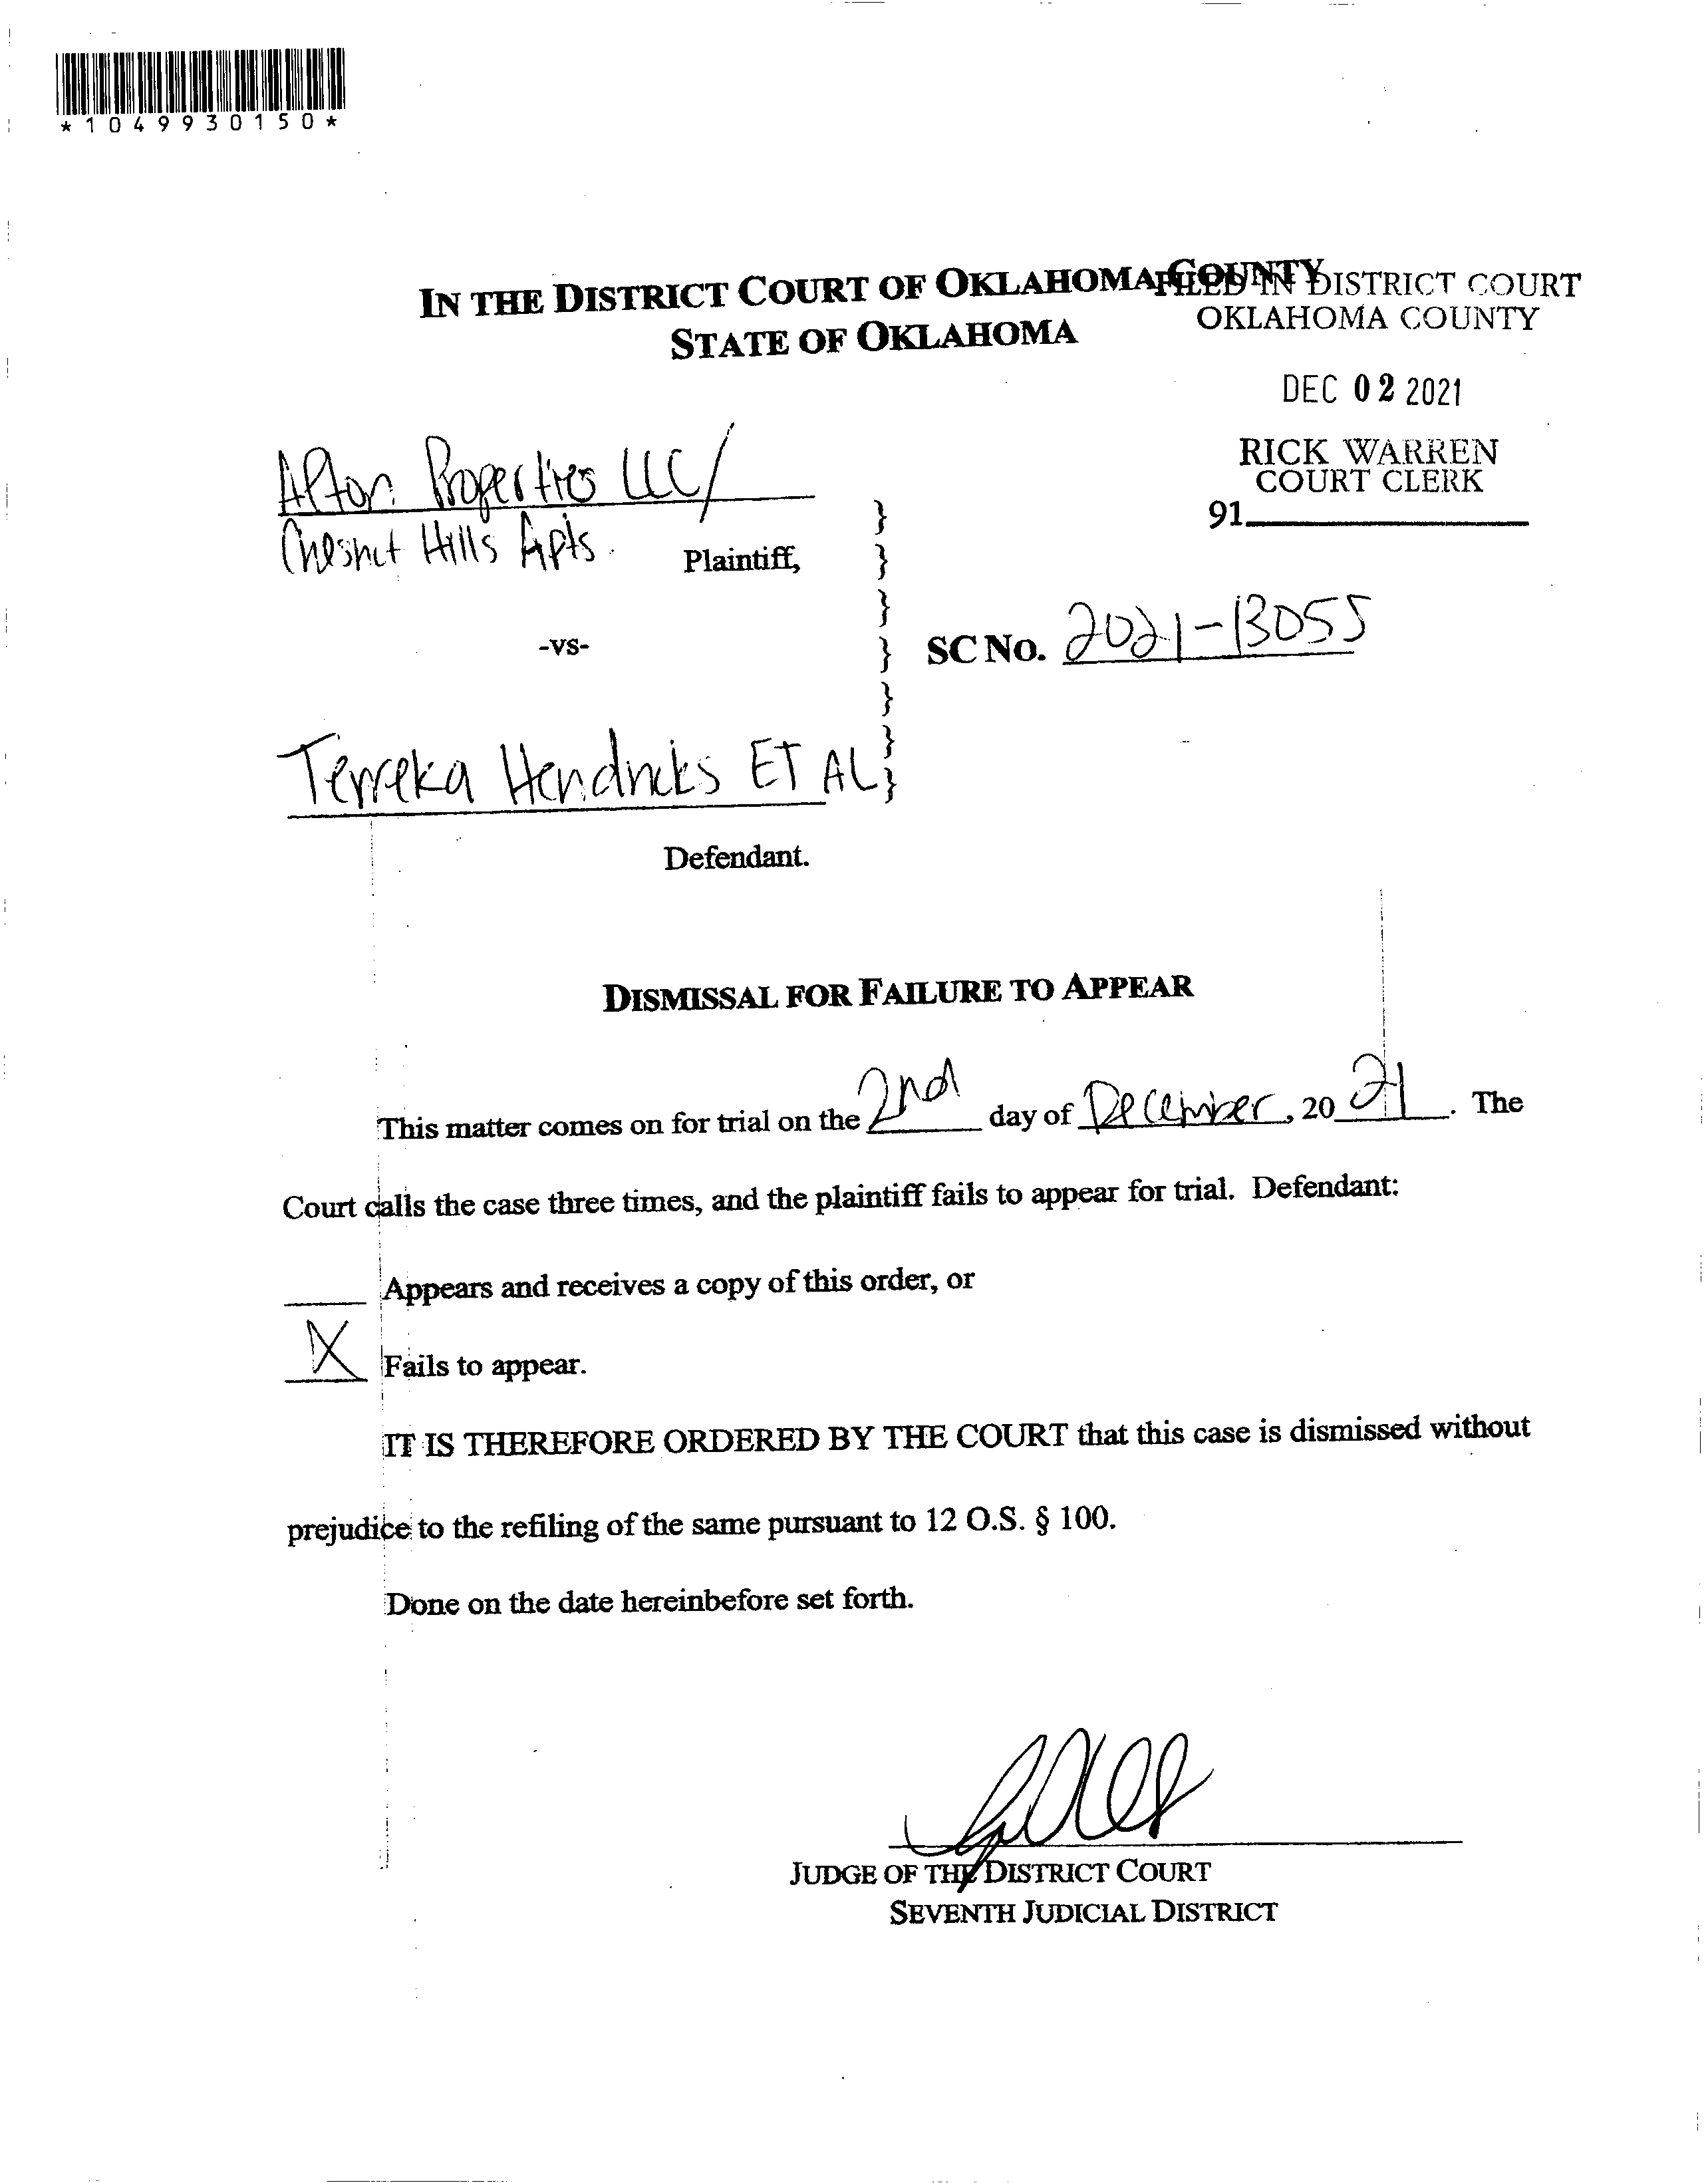 *1049930150*
IN THE DISTRICT COURT OF OKLAHOMA COUNTY
STATE OF OKLAHOMA
FILED IN DISTRICT COURT
OKLAHOMA COUNTY
DEC 02 2021
RICK WARREN
COURT CLERK
91
Afton Properties LLC/
Chesnut Hills Apts.
Plaintiff,
-vs-
SC No. 2021-13055
Terreka Hendricks ET AL
Defendant.
DISMISSAL FOR FAILURE TO APPEAR
This matter comes on for trial on the 2nd day of December, 20 21. The
Court calls the case three times, and the plaintiff fails to appear for trial. Defendant:
Appears and receives a copy of this order, or
X Fails to appear.
IT IS THEREFORE ORDERED BY THE COURT that this case is dismissed without
prejudice to the refiling of the same pursuant to 12 O.S. § 100.
Done on the date hereinbefore set forth.
JUDGE OF THE DISTRICT COURT
SEVENTH JUDICIAL DISTRICT